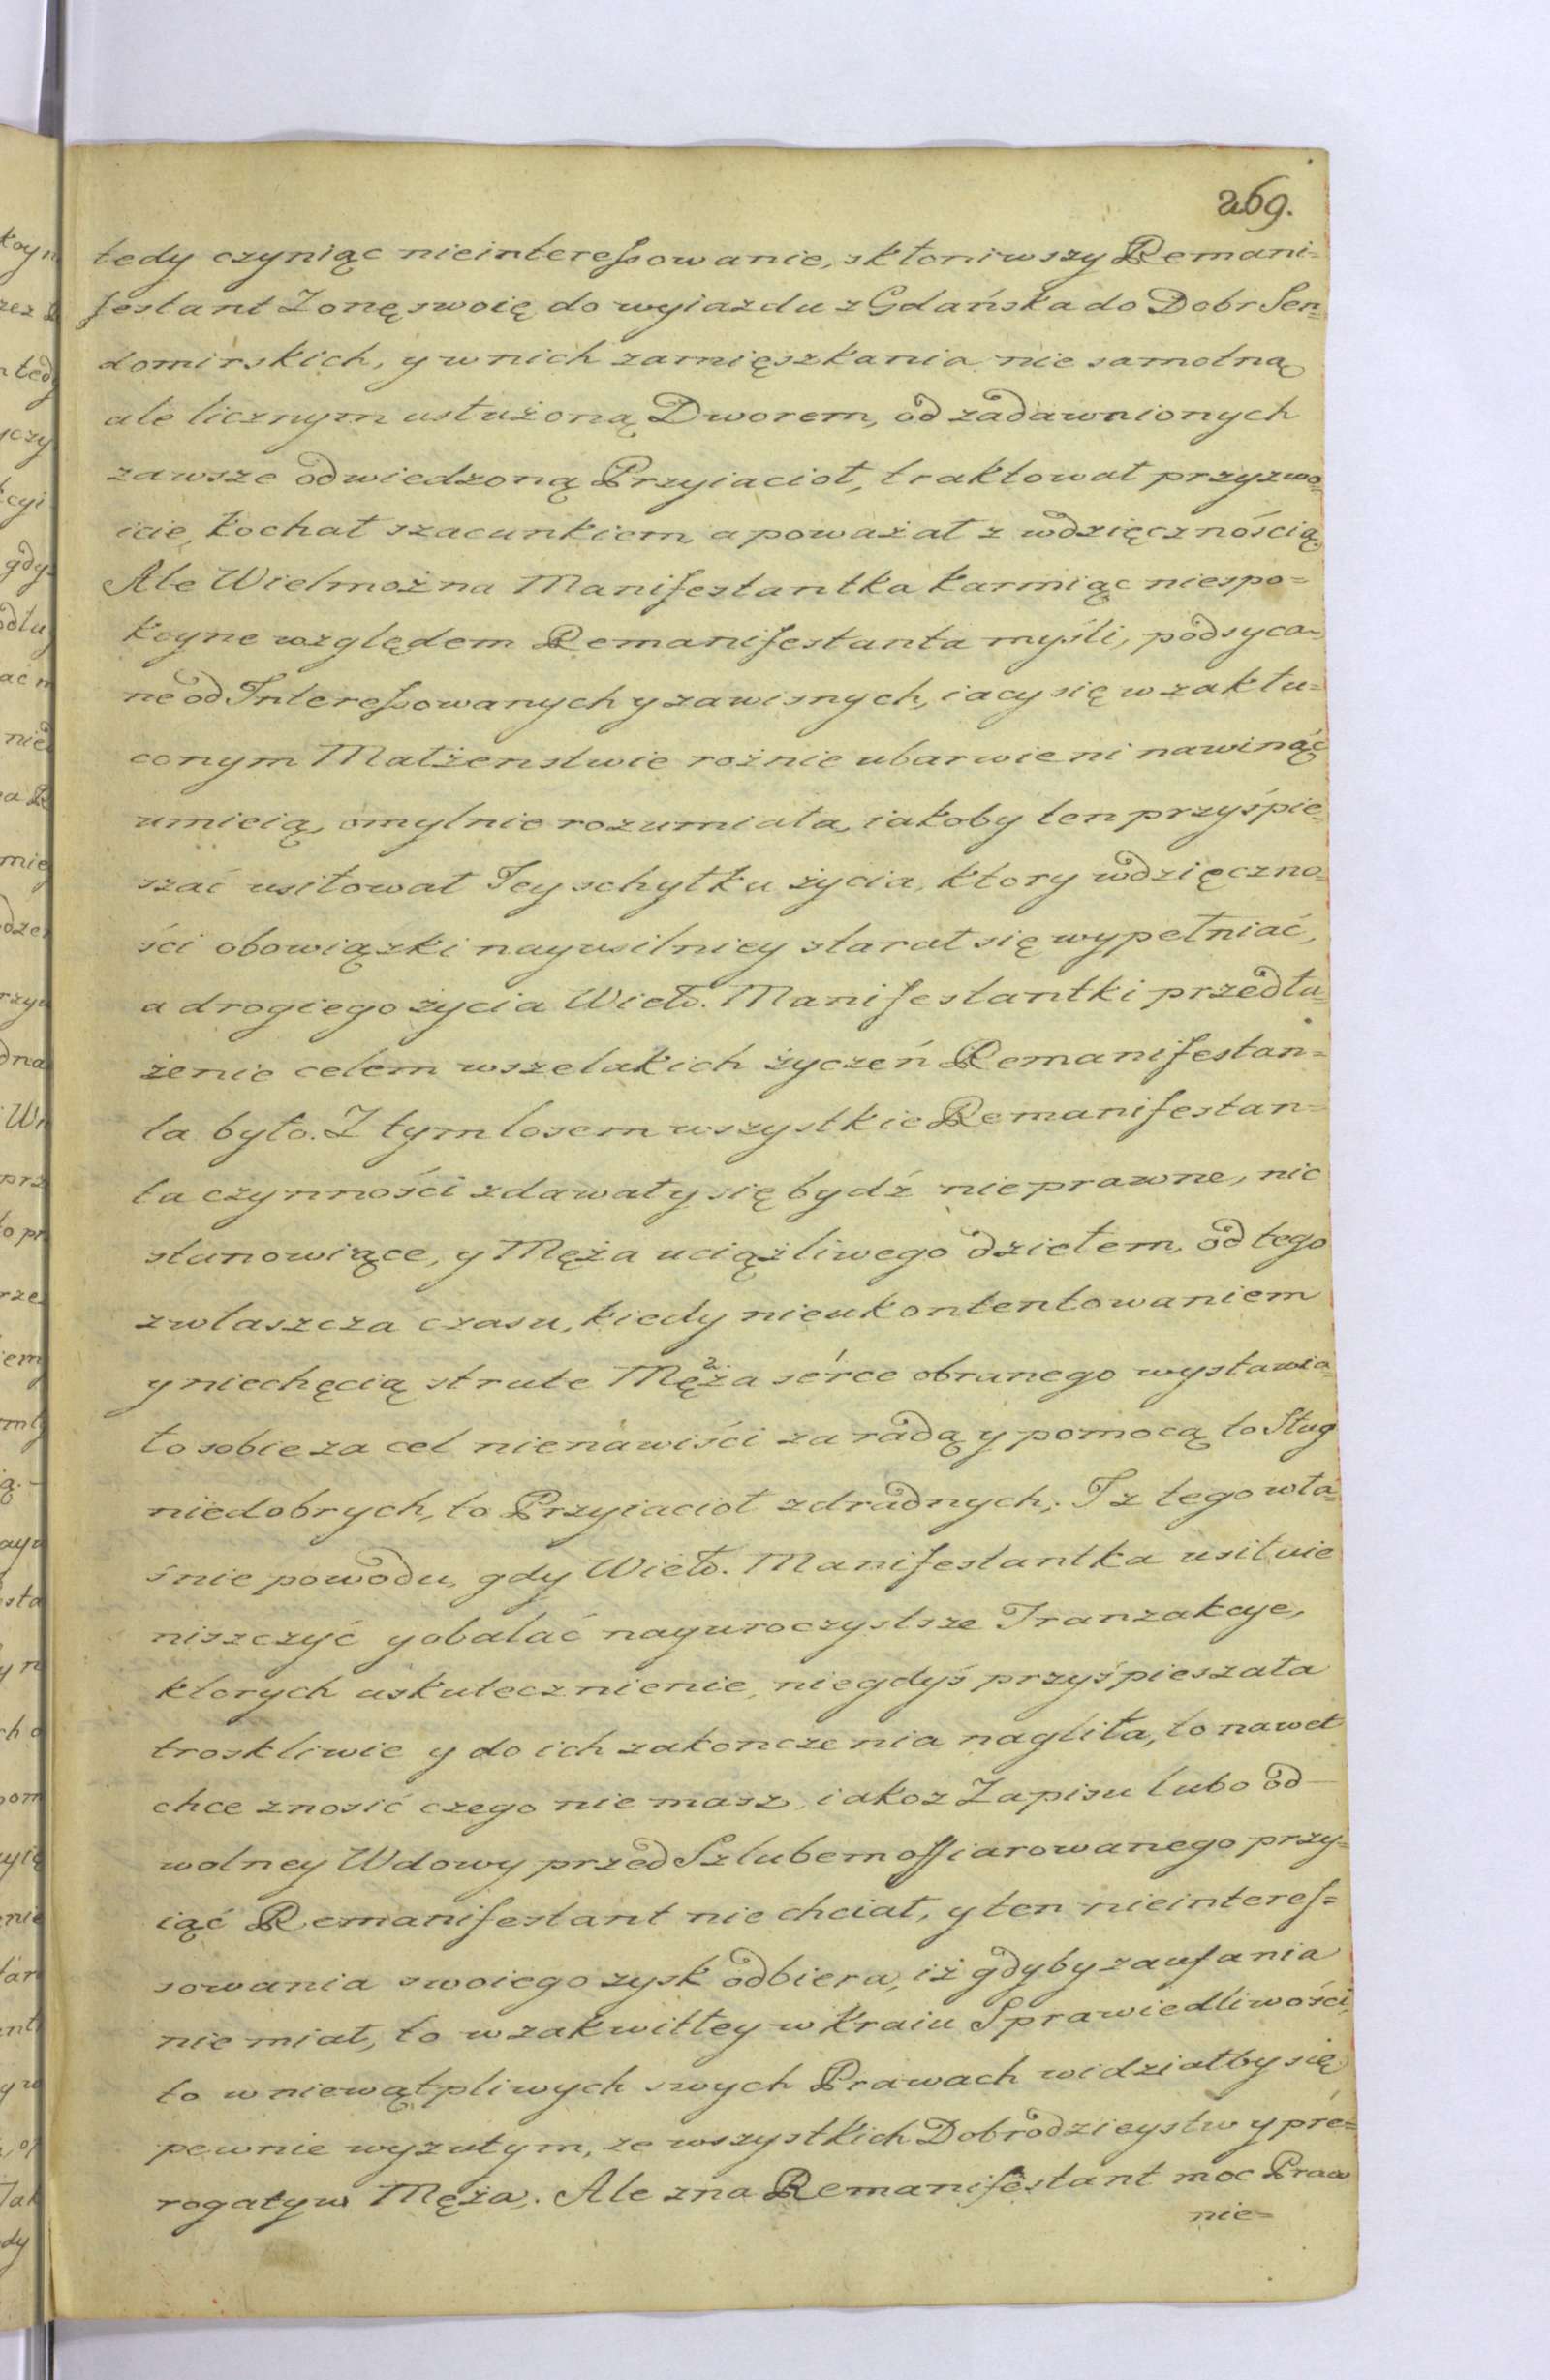 269.
tedy czyniąc nieinteressowanie, skłoniwszy Remani=
festant Zonę swoię do wyiazdu z Gdańska do Dobr Sen=
domirskich, y w nich zamięszkania nie samotną
ale licznym usłużoną Dworem, od zadawnionych
zawsze odwiedzoną Przyiacioł, traktował przyzwo=
icie, kochał szacunkiem a poważał z wdzięcznością,
Ale Wielmożna Manifestantka karmiąc niespo=
koyne względem Remanifestanta myśli, podsyca=
ne od Interessowanych y zawisnych, iacy się w zakłu=
conym Małżenstwie rożnie ubarwieni nawinąć
umieią, omylnie rozumiała, iakoby ten przyśpie=
szać usiłował Jey schyłku życia, ktory wdzięczno=
ści obowiązki nayusilniey starał się wypełniać,
a drogiego życia Wielo. Manifestantki przedłu=
żenie celem wszelakich życzeń Remanifestan=
ta było. Z tym losem wszystkie Remanifestan=
ta czynności zdawały się bydź nieprawne, nic
stanowiące, y Męża uciążliwego dziełem, od tego
zwłaszcza czasu, kiedy nieukontentowaniem
y niechęcią strute Męża 2. sérce obranego wystawia=
ło sobie za cel nienawiści za radą y pomocą to Sług
niedobrych, to Przyiacioł zdradnych; I z tego wła=
śnie powodu, gdy Wielo. Manifestantka usiłuie
niszczyć y obalać nayuroczystsze Tranzakcye,
ktorych uskutecznienie, niegdyś przyśpieszała
troskliwie y do ich zakonczenia nagliła, to nawet
chce znosić czego nie masz, iakoz Zapisu lubo od
wolney Wdowy przed Szlubem offiarowanego przy=
iąć Remanifestant nie chciał, y ten nieinteres=
sowania swoiego zysk odbiera, iż gdyby zaufania
nie miał, to w zakwitłey w Kraiu Sprawiedliwości,
to w niewątpliwych swych Prawach widziałby się
pewnie wyzutym, ze wszystkich Dobrodzieystw y pré=
rogatyw Męża. Ale zna Remanifestant moc Praw
nie=